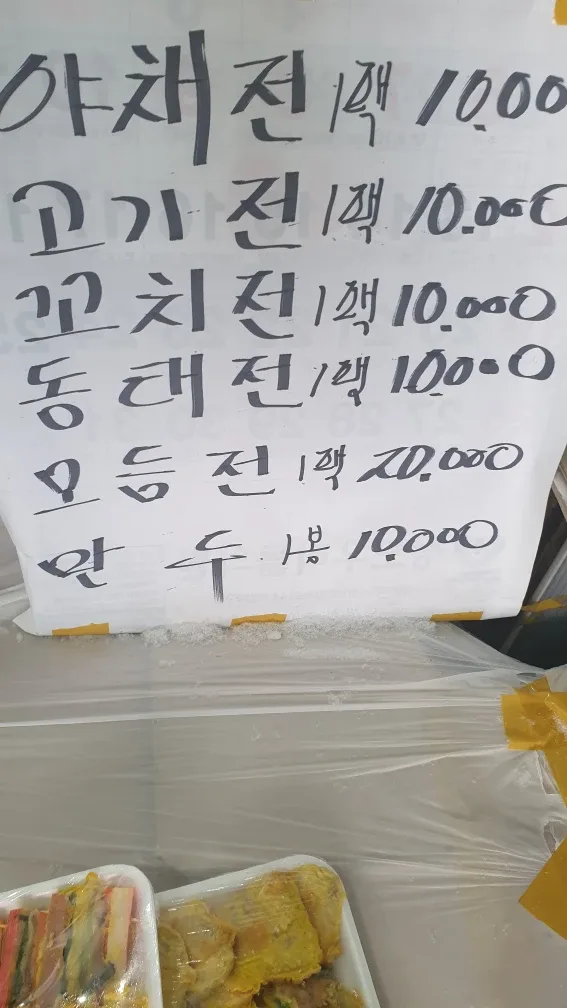 야채전 1팩 10.00
고기전 1팩 10.000
꼬치전 1팩 10.000
동태전 1팩 10.000
모듬전 1팩 20.000
만두 1봉 10.000